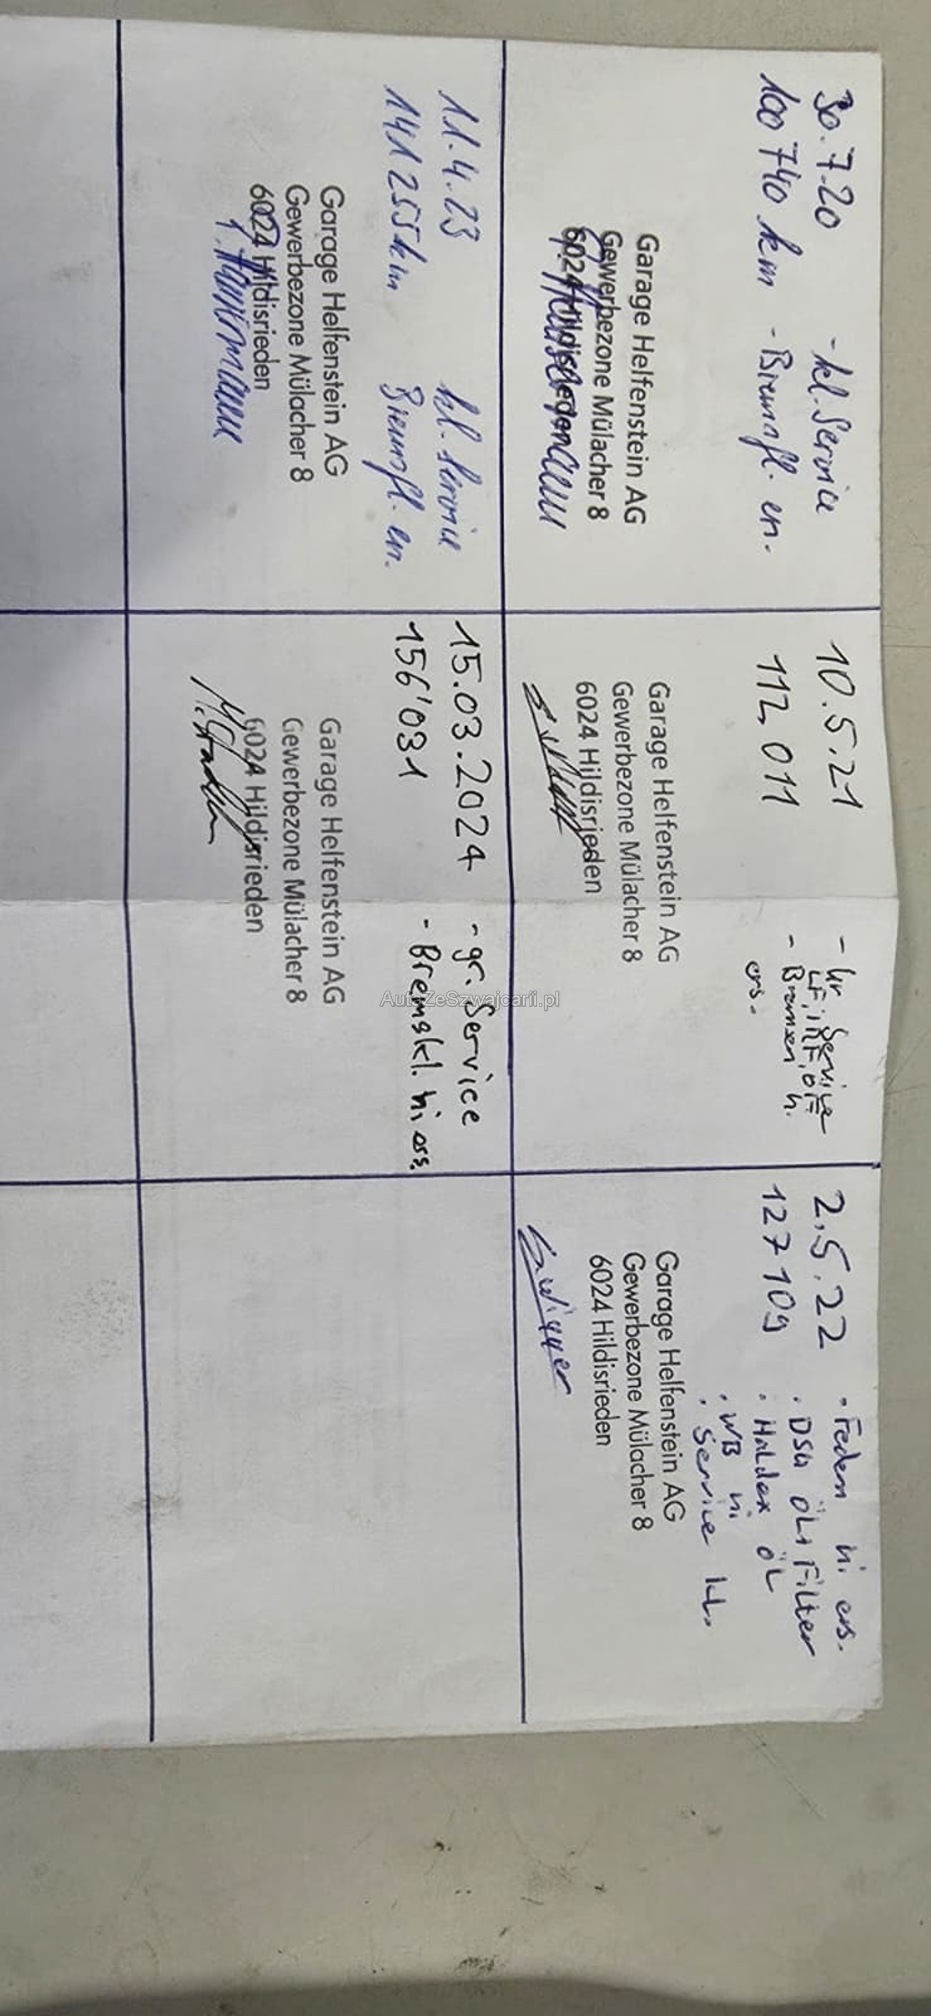 30.7.20 - kl. Service
100 740 km - Bremsfl. en.
Garage Helfenstein AG
Gewerbezone Mülacher 8
6024 Hildisrieden
10.5.21 - Gr Service
112,011 LF, iRF, ÖF
- Bremsen h.
ers.
Garage Helfenstein AG
Gewerbezone Mülacher 8
6024 Hildisrieden
2.5.22 · Federn hi ers.
127 109 · DSG ÖL + Filter
· Haldex ÖL
· WB hi.
· Service kl.
Garage Helfenstein AG
Gewerbezone Mülacher 8
6024 Hildisrieden
11.4.23 kl. Service
141 255 km Bremsfl. en.
Garage Helfenstein AG
Gewerbezone Mülacher 8
6024 Hildisrieden
15.03.2024 - gr. Service
156'031 - Bremskl. hi ers.
Garage Helfenstein AG
Gewerbezone Mülacher 8
6024 Hildisrieden
AutaZeSzwajcarii.pl